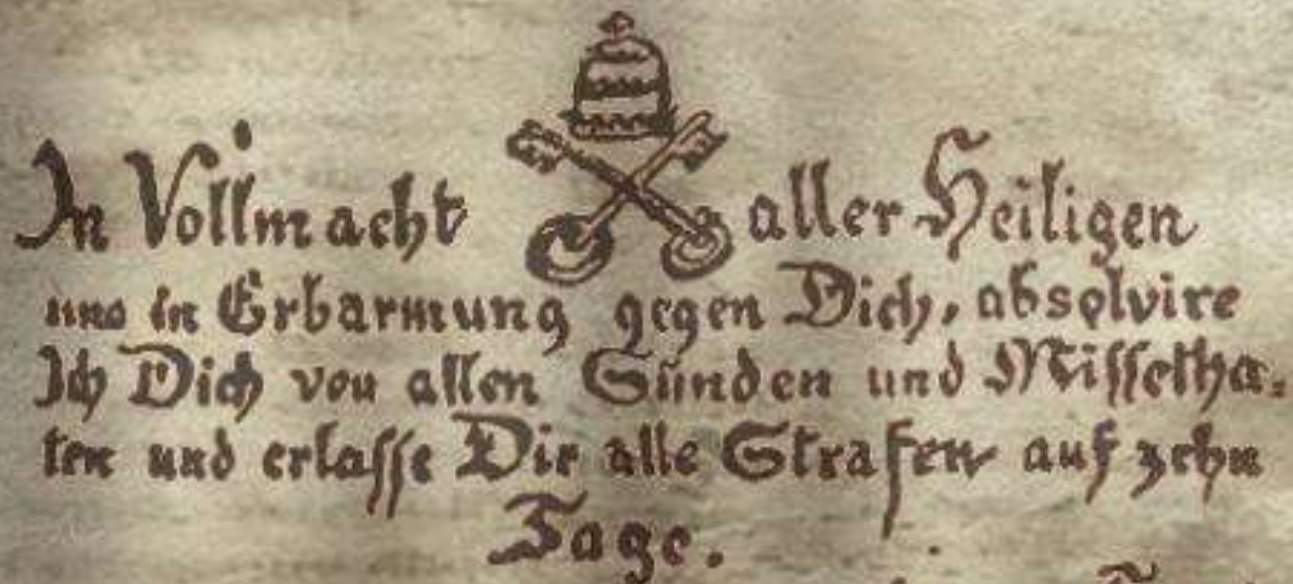 In Vollmacht aller Heiligen
und in Erbarmung gegen Dich, absolvire
Ich Dich von allen Sünden und Missetha-
ten und erlasse Dir alle Strafen auf zehn
Tage.